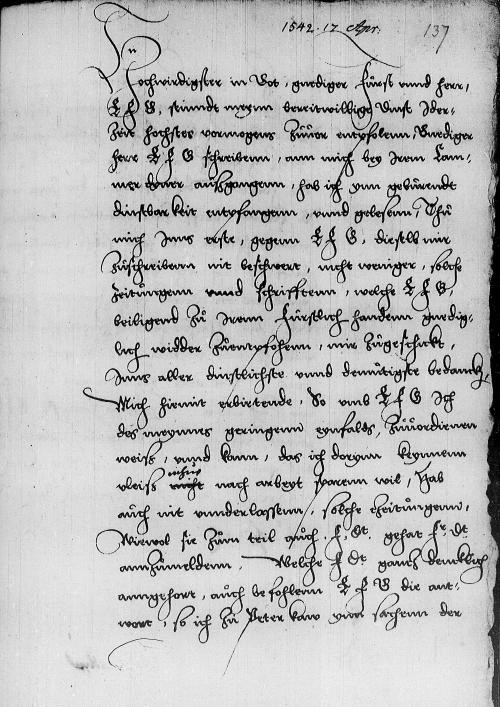 1542. 17 Apr.
137
Hochwirdigster in Got, gnediger Fürst vnnd herr,
E F G, seindt meynn bereitwillige dinst Ider-
Zeit hochstes vormogens Zuuor entpfolenn, Gnediger
herr E F G schreibenn, ann mich bey Irem Cam-
mer dyner außgangenn, hab ich ynn gebürendt
dinstbarkeit entpfangenn, vnnd gelesenn, Thu
mich Inns erste, gegenn E F G, dieselb mir
Zuschreibenn nit beschwert, nicht weniger, solche
Zeitungenn vnnd schrifftenn, welche E F G,
beiligend Zu Irenn Fürstlich handenn gnedig-
lich widder Zuentpfohenn, mir Zugeschickt,
Inns aller dinstlichste vnnd demütigste bedanck,
Mich hiemit erbietende, So vmb E F G Ich
des meynns geringenn eynfalds, Zuuordienen
weiß, vnnd kann, das ich dorynn keynnenn
vleiß nach arbeyt sparenn wil, Hab
auch nit vnnderlassenn, solche Zeitungenn,
Wiewol sie Zum teil auch f. Dt. gehat fr. Dt.
annZumeldenn. Welche f Dt gantz dencklich
anngehort, auch befohlenn E F G die ant-
wort, so ich Zu Peter kaw ynn sachenn der